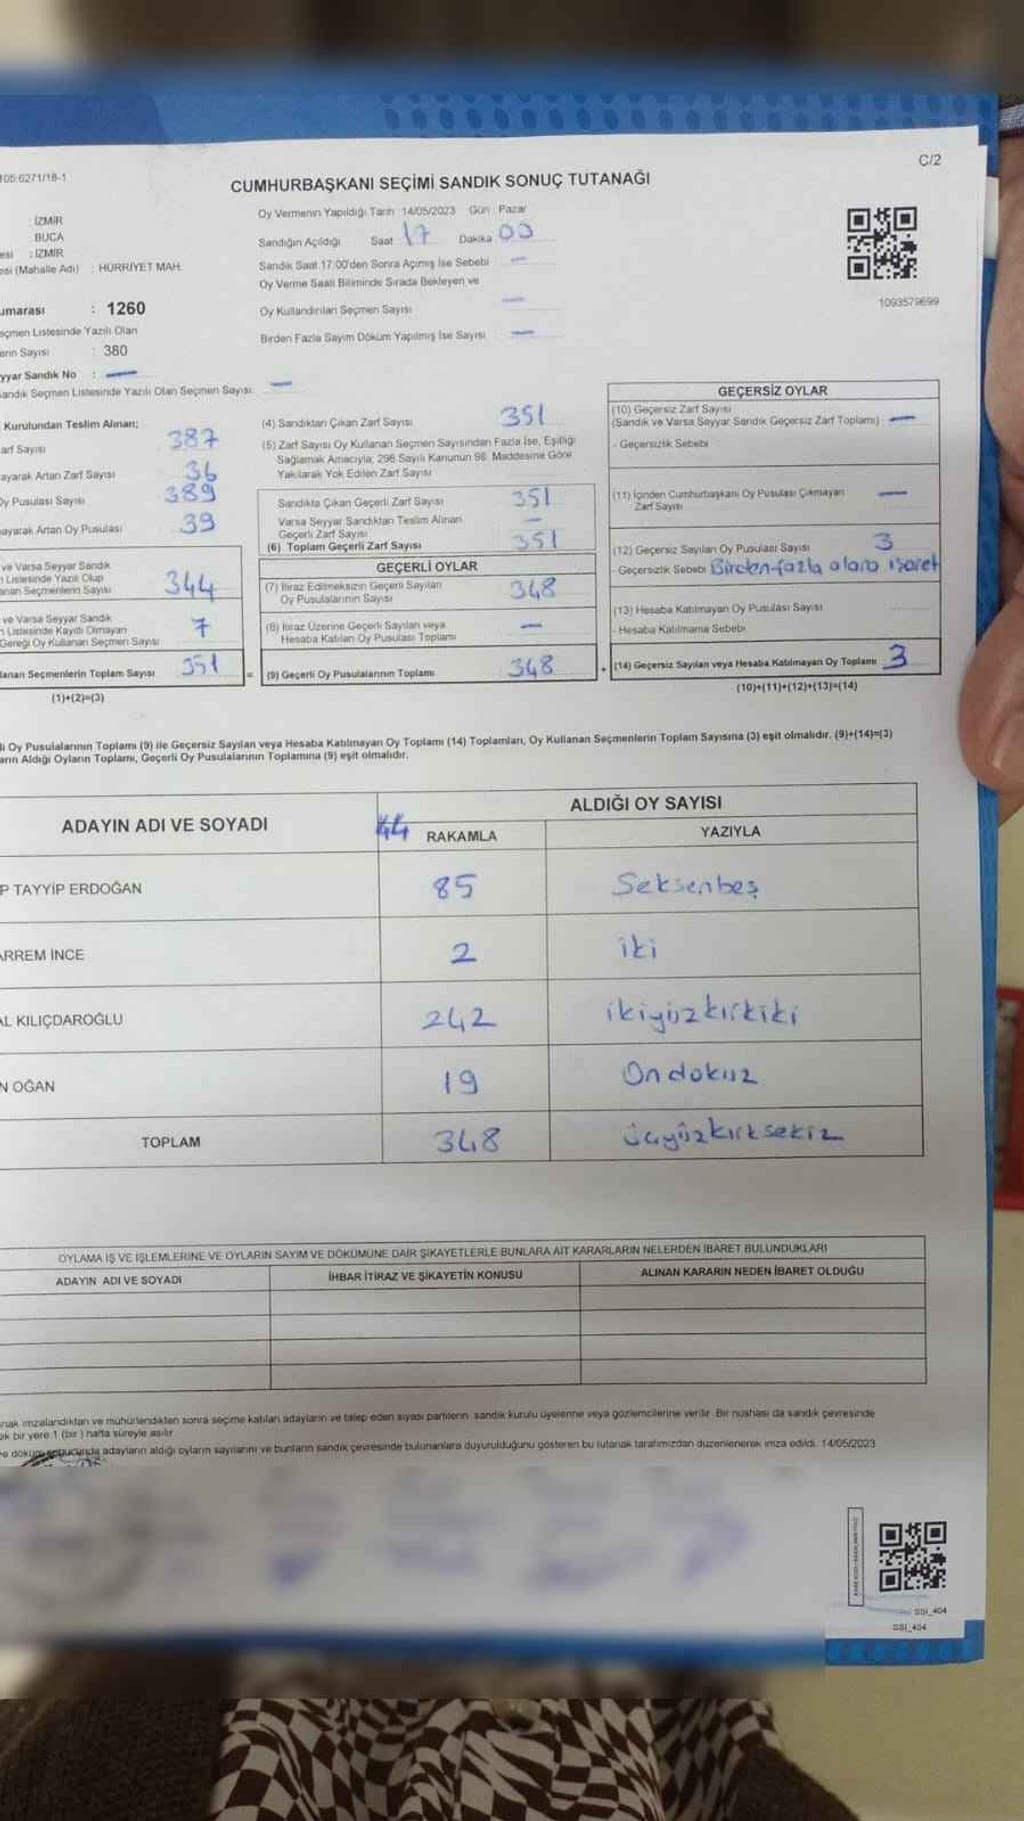 C/2
105:6271/18-1
CUMHURBAŞKANI SEÇİMİ SANDIK SONUÇ TUTANAĞI
: İZMİR
: BUCA
esi : İZMİR
esi (Mahalle Adı) : HÜRRİYET MAH.
umarası : 1260
eçmen Listesinde Yazılı Olan
erin Sayısı : 380
yyar Sandık No : —
andık Seçmen Listesinde Yazılı Olan Seçmen Sayısı: —
Oy Vermenin Yapıldığı Tarih :14/05/2023 Gün : Pazar
Sandığın Açıldığı Saat 17 Dakika 00
Sandık Saat 17:00'den Sonra Açılmış İse Sebebi —
Oy Verme Saati Bitiminde Sırada Bekleyen ve
Oy Kullandırılan Seçmen Sayısı —
Birden Fazla Sayım Döküm Yapılmış İse Sayısı —
1093579699
Kurulundan Teslim Alınan;
arf Sayısı 387
ayarak Artan Zarf Sayısı 36
Oy Pusulası Sayısı 389
ayarak Artan Oy Pusulası 39
ve Varsa Seyyar Sandık
n Listesinde Yazılı Olup
anan Seçmenlerin Sayısı 344
ve Varsa Seyyar Sandık
n Listesinde Kayıtlı Olmayan
Gereği Oy Kullanan Seçmen Sayısı 7
lanan Seçmenlerin Toplam Sayısı 351
(1)+(2)=(3)
(4) Sandıktan Çıkan Zarf Sayısı 351
(5) Zarf Sayısı Oy Kullanan Seçmen Sayısından Fazla İse, Eşitliği
Sağlamak Amacıyla; 298 Sayılı Kanunun 98. Maddesine Göre
Yakılarak Yok Edilen Zarf Sayısı
Sandıkta Çıkan Geçerli Zarf Sayısı 351
Varsa Seyyar Sandıktan Teslim Alınan
Geçerli Zarf Sayısı —
(6) Toplam Geçerli Zarf Sayısı 351
GEÇERLİ OYLAR
(7) İtiraz Edilmeksizin Geçerli Sayılan
Oy Pusulalarının Sayısı 348
(8) İtiraz Üzerine Geçerli Sayılan veya
Hesaba Katılan Oy Pusulası Toplamı —
= (9) Geçerli Oy Pusulalarının Toplamı 348
GEÇERSİZ OYLAR
(10) Geçersiz Zarf Sayısı
(Sandık ve Varsa Seyyar Sandık Geçersiz Zarf Toplamı) : —
- Geçersizlik Sebebi
(11) İçinden Cumhurbaşkanı Oy Pusulası Çıkmayan
Zarf Sayısı —
(12) Geçersiz Sayılan Oy Pusulası Sayısı 3
- Geçersizlik Sebebi Birden fazla alana işaret
(13) Hesaba Katılmayan Oy Pusulası Sayısı
- Hesaba Katılmama Sebebi
+ (14) Geçersiz Sayılan veya Hesaba Katılmayan Oy Toplamı 3
(10)+(11)+(12)+(13)=(14)
li Oy Pusulalarının Toplamı (9) ile Geçersiz Sayılan veya Hesaba Katılmayan Oy Toplamı (14) Toplamları, Oy Kullanan Seçmenlerin Toplam Sayısına (3) eşit olmalıdır. (9)+(14)=(3)
arın Aldığı Oyların Toplamı, Geçerli Oy Pusulalarının Toplamına (9) eşit olmalıdır.
ADAYIN ADI VE SOYADI
ALDIĞI OY SAYISI
RAKAMLA YAZIYLA
P TAYYİP ERDOĞAN 85 Seksenbeş
ARREM İNCE 2 iki
AL KILIÇDAROĞLU 242 ikiyüzkırkiki
N OĞAN 19 Ondokuz
TOPLAM 348 üçyüzkırksekiz
OYLAMA İŞ VE İŞLEMLERİNE VE OYLARIN SAYIM VE DÖKÜMÜNE DAİR ŞİKAYETLERLE BUNLARA AİT KARARLARIN NELERDEN İBARET BULUNDUKLARI
ADAYIN ADI VE SOYADI İHBAR İTİRAZ VE ŞİKAYETİN KONUSU ALINAN KARARIN NEDEN İBARET OLDUĞU
nak imzalandıktan ve mühürlendikten sonra seçime katılan adayların ve talep eden siyasi partilerin sandık kurulu üyelerine veya gözlemcilerine verilir. Bir nüshası da sandık çevresinde
ak bir yere 1 (bir) hafta süreyle asılır.
adayların aldığı oyların sayılarını ve bunların sandık çevresinde bulunanlara duyurulduğunu gösteren bu tutanak tarafımızdan düzenlenerek imza edildi. 14/05/2023
SSI_404
SSI_404